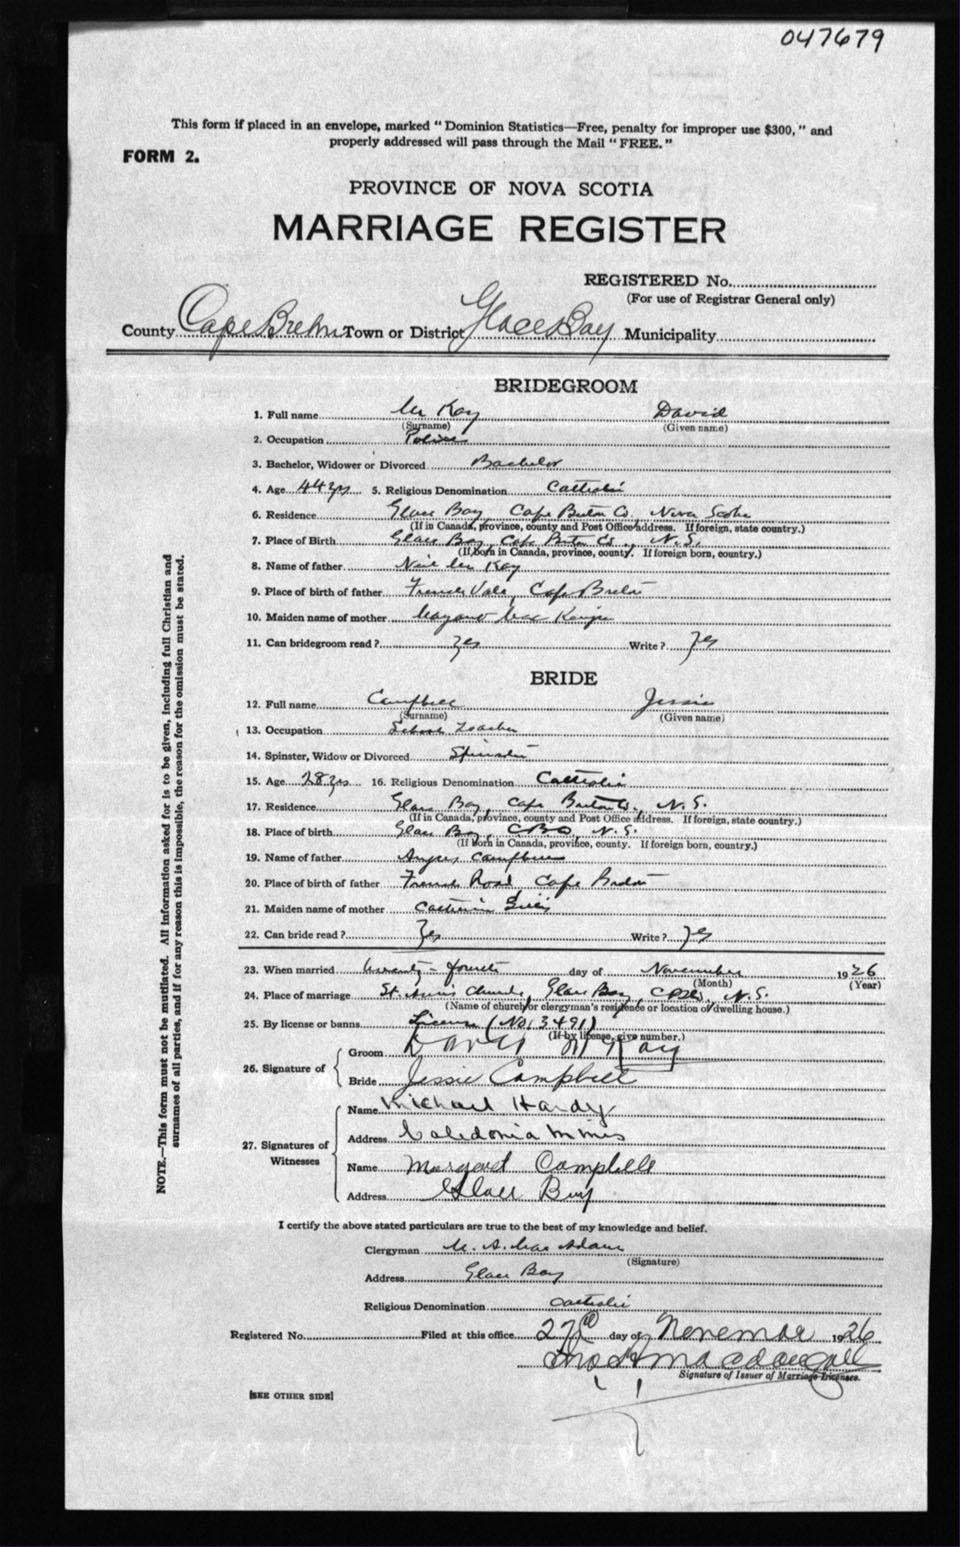 047679
This form if placed in an envelope, marked "Dominion Statistics—Free, penalty for improper use $300," and
properly addressed will pass through the Mail "FREE."
FORM 2.
PROVINCE OF NOVA SCOTIA
MARRIAGE REGISTER
REGISTERED No.
(For use of Registrar General only)
County Cape Breton Town or District Glace Bay Municipality
BRIDEGROOM
1. Full name Mc Kay David
(Surname) (Given name)
2. Occupation Police
3. Bachelor, Widower or Divorced Bachelor
4. Age 44 yrs 5. Religious Denomination Catholic
6. Residence Glace Bay, Cape Breton Co. Nova Scotia
(If in Canada, province, county and Post Office address. If foreign, state country.)
7. Place of Birth Glace Bay Cape Breton Co., N. S.
(If born in Canada, province, county. If foreign born, country.)
8. Name of father Neil Mc Kay
9. Place of birth of father French Vale, Cape Breton
10. Maiden name of mother Mac
11. Can bridegroom read? Yes Write? Yes
BRIDE
12. Full name Campbell Jessie
(Surname) (Given name)
13. Occupation School Teacher
14. Spinster, Widow or Divorced Spinster
15. Age 28 yrs 16. Religious Denomination Catholic
17. Residence Glace Bay, Cape Breton Co., N. S.
(If in Canada, province, county and Post Office address. If foreign, state country.)
18. Place of birth Glace Bay, C B Co, N. S.
(If born in Canada, province, county. If foreign born, country.)
19. Name of father Angus Campbell
20. Place of birth of father French Road Cape Breton
21. Maiden name of mother Catherine Gillis
22. Can bride read? Yes Write? Yes
23. When married twenty-fourth day of November 1926
(Month) (Year)
24. Place of marriage St. Ann's Church, Glace Bay, C B Co, N. S.
(Name of church or clergyman's residence or location of dwelling house.)
25. By license or banns License (No. 3491)
(If by license, give number.)
26. Signature of
Groom David McKay
Bride Jessie Campbell
27. Signatures of Witnesses
Name Michael Hardy
Address Caledonia Mines
Name Margaret Campbell
Address Glace Bay
I certify the above stated particulars are true to the best of my knowledge and belief.
Clergyman M. A. Mac Adam
(Signature)
Address Glace Bay
Religious Denomination Catholic
Registered No. Filed at this office 27th day of November 1926
Thos MacDougall
Signature of Issuer of Marriage Licenses.
[SEE OTHER SIDE]
NOTE.—This form must not be mutilated. All information asked for is to be given, including full Christian and
surnames of all parties, and if for any reason this is impossible, the reason for the omission must be stated.